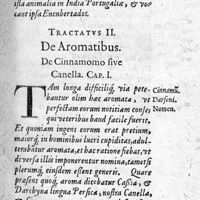 ista animalia in India Portugaliæ, & vo-
cant ipsa Encubertados.
TRACTATVS II.
De Aromatibus.
De Cinnamomo sive
Canella. CAP. I.
TAm longa difficiliq; via pete-
bantur olim hæc aromata, ut
perfectam eorum notitiam conse-
qui veteribus haud facile fuerit.
Et quoniam ingens eorum erat pretium,
maior q; in hominibus lucri cupiditas, adul-
terabatur aromata, et hac ratione fiebat, ut
diversa illis imponerentur nomina, tametsi
plerumq; eiusdem essent generis. Quare
præsenti quoq; aroma dicitabur Cassia, &
Darchyna lingua Persica, nostra Canella,
Cinnam.
ut Darseni.
Nomen.